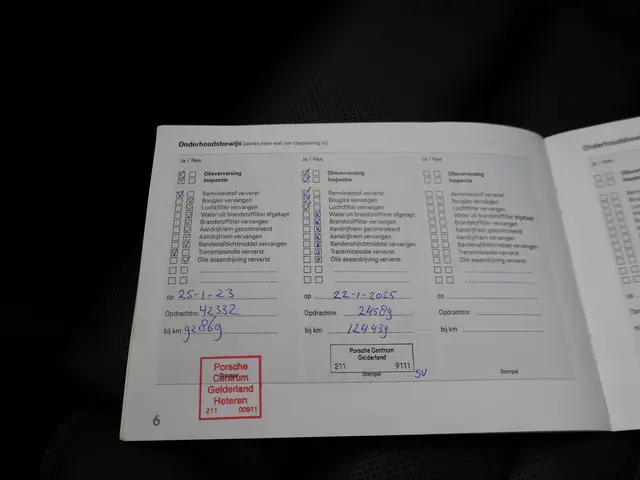 Onderhoudsbewijs (aankruisen wat van toepassing is)
Ja / Nee
Olieverversing
Inspectie
Remvloeistof ververst
Bougies vervangen
Luchtfilter vervangen
Water uit brandstoffilter afgetapt
Brandstoffilter vervangen
Aandrijfriem gecontroleerd
Aandrijfriem vervangen
Bandenafdichtmiddel vervangen
Transmissieolie ververst
Olie asaandrijving ververst
op 25-1-23
Opdrachtnr. 42332
bij km 92869
Stempel
Porsche
Centrum
Gelderland
Heteren
211 00911
Ja / Nee
Olieverversing
Inspectie
Remvloeistof ververst
Bougies vervangen
Luchtfilter vervangen
Water uit brandstoffilter afgetapt
Brandstoffilter vervangen
Aandrijfriem gecontroleerd
Aandrijfriem vervangen
Bandenafdichtmiddel vervangen
Transmissieolie ververst
Olie asaandrijving ververst
op 22-1-2025
Opdrachtnr. 24589
bij km 124439
Porsche Centrum
Gelderland
211 9111
Stempel
SU
Ja / Nee
Olieverversing
Inspectie
Remvloeistof ververst
Bougies vervangen
Luchtfilter vervangen
Water uit brandstoffilter afgetapt
Brandstoffilter vervangen
Aandrijfriem gecontroleerd
Aandrijfriem vervangen
Bandenafdichtmiddel vervangen
Transmissieolie ververst
Olie asaandrijving ververst
op
Opdrachtnr.
bij km
Stempel
6
Ja / Nee